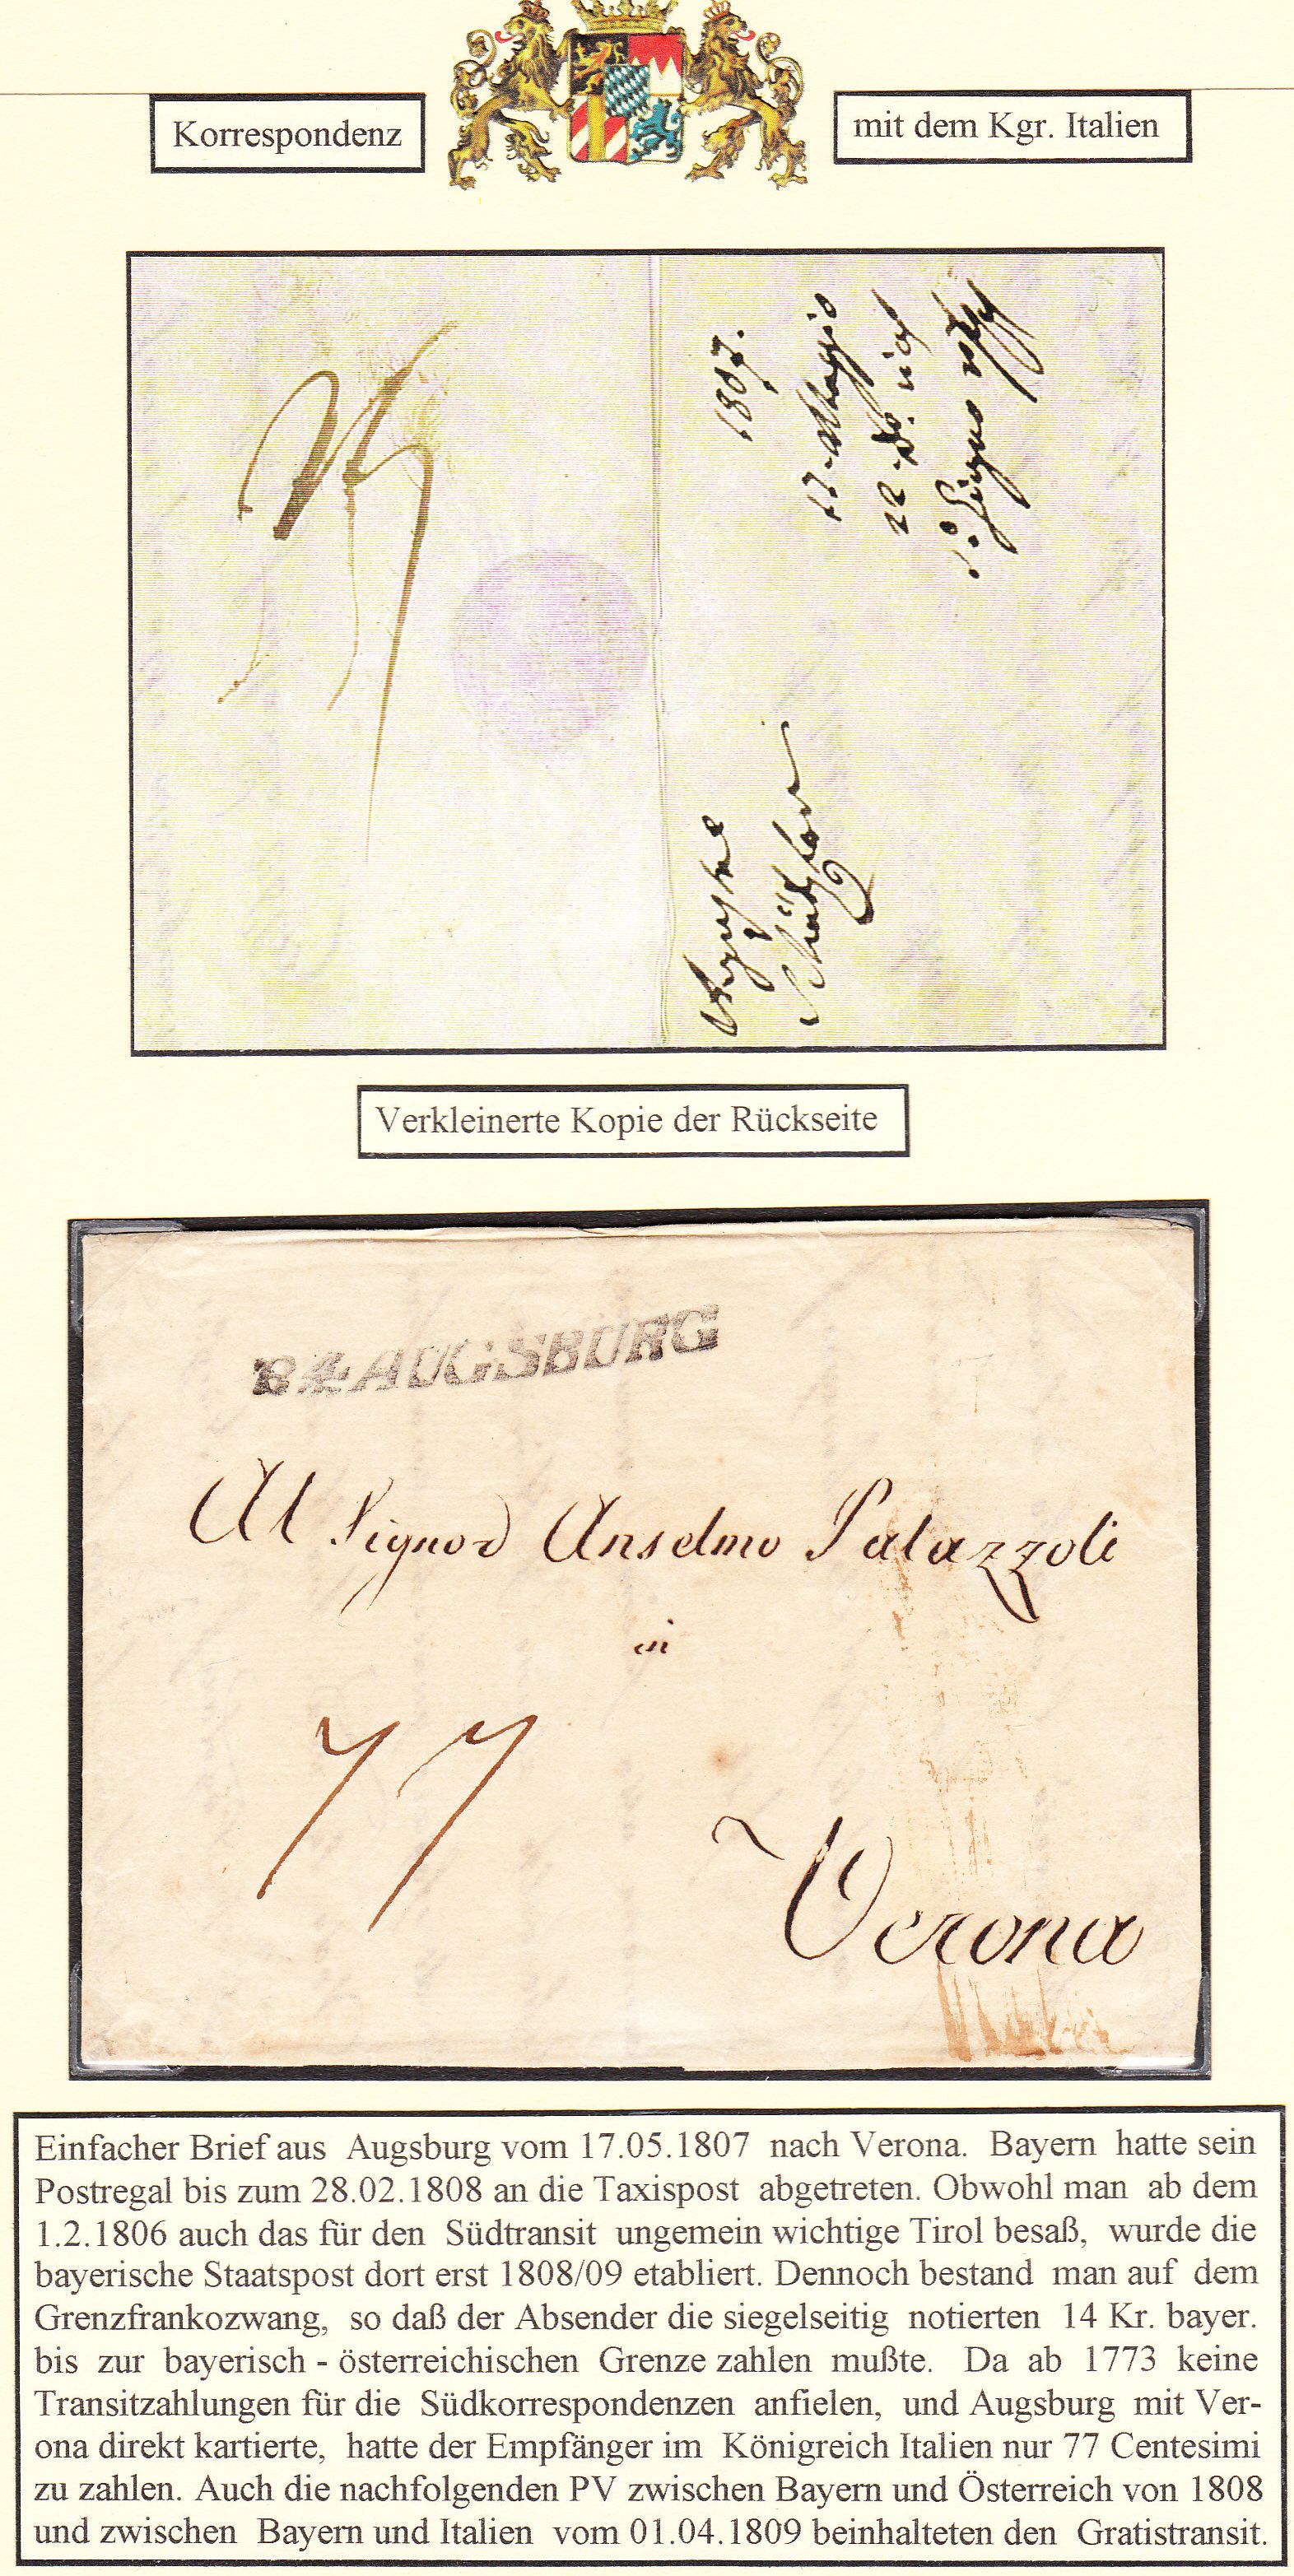 Korrespondenz
mit dem Kgr. Italien
1807.
17. Maggio
22 do.
Augusta
Verkleinerte Kopie der Rückseite
R.4.AUGSBURG
Al Signor Anselmo Palazzoli
in
77
Verona
Einfacher Brief aus Augsburg vom 17.05.1807 nach Verona. Bayern hatte sein
Postregal bis zum 28.02.1808 an die Taxispost abgetreten. Obwohl man ab dem
1.2.1806 auch das für den Südtransit ungemein wichtige Tirol besaß, wurde die
bayerische Staatspost dort erst 1808/09 etabliert. Dennoch bestand man auf dem
Grenzfrankozwang, so daß der Absender die siegelseitig notierten 14 Kr. bayer.
bis zur bayerisch - österreichischen Grenze zahlen mußte. Da ab 1773 keine
Transitzahlungen für die Südkorrespondenzen anfielen, und Augsburg mit Ver-
ona direkt kartierte, hatte der Empfänger im Königreich Italien nur 77 Centesimi
zu zahlen. Auch die nachfolgenden PV zwischen Bayern und Österreich von 1808
und zwischen Bayern und Italien vom 01.04.1809 beinhalteten den Gratistransit.